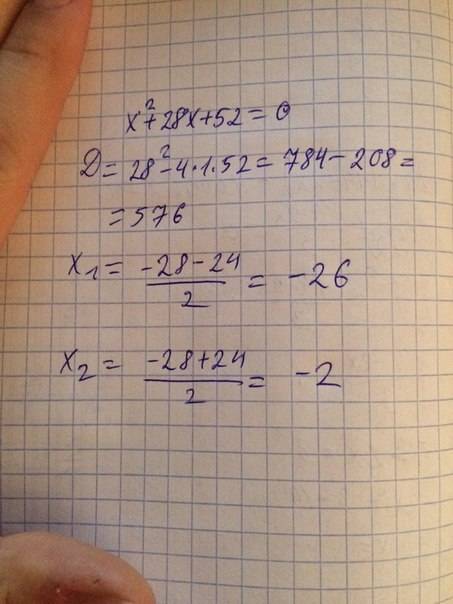 x² + 28x + 52 = 0
D = 28² - 4 · 1 · 52 = 784 - 208 =
= 576
x₁ = (-28 - 24)/2 = -26
x₂ = (-28 + 24)/2 = -2